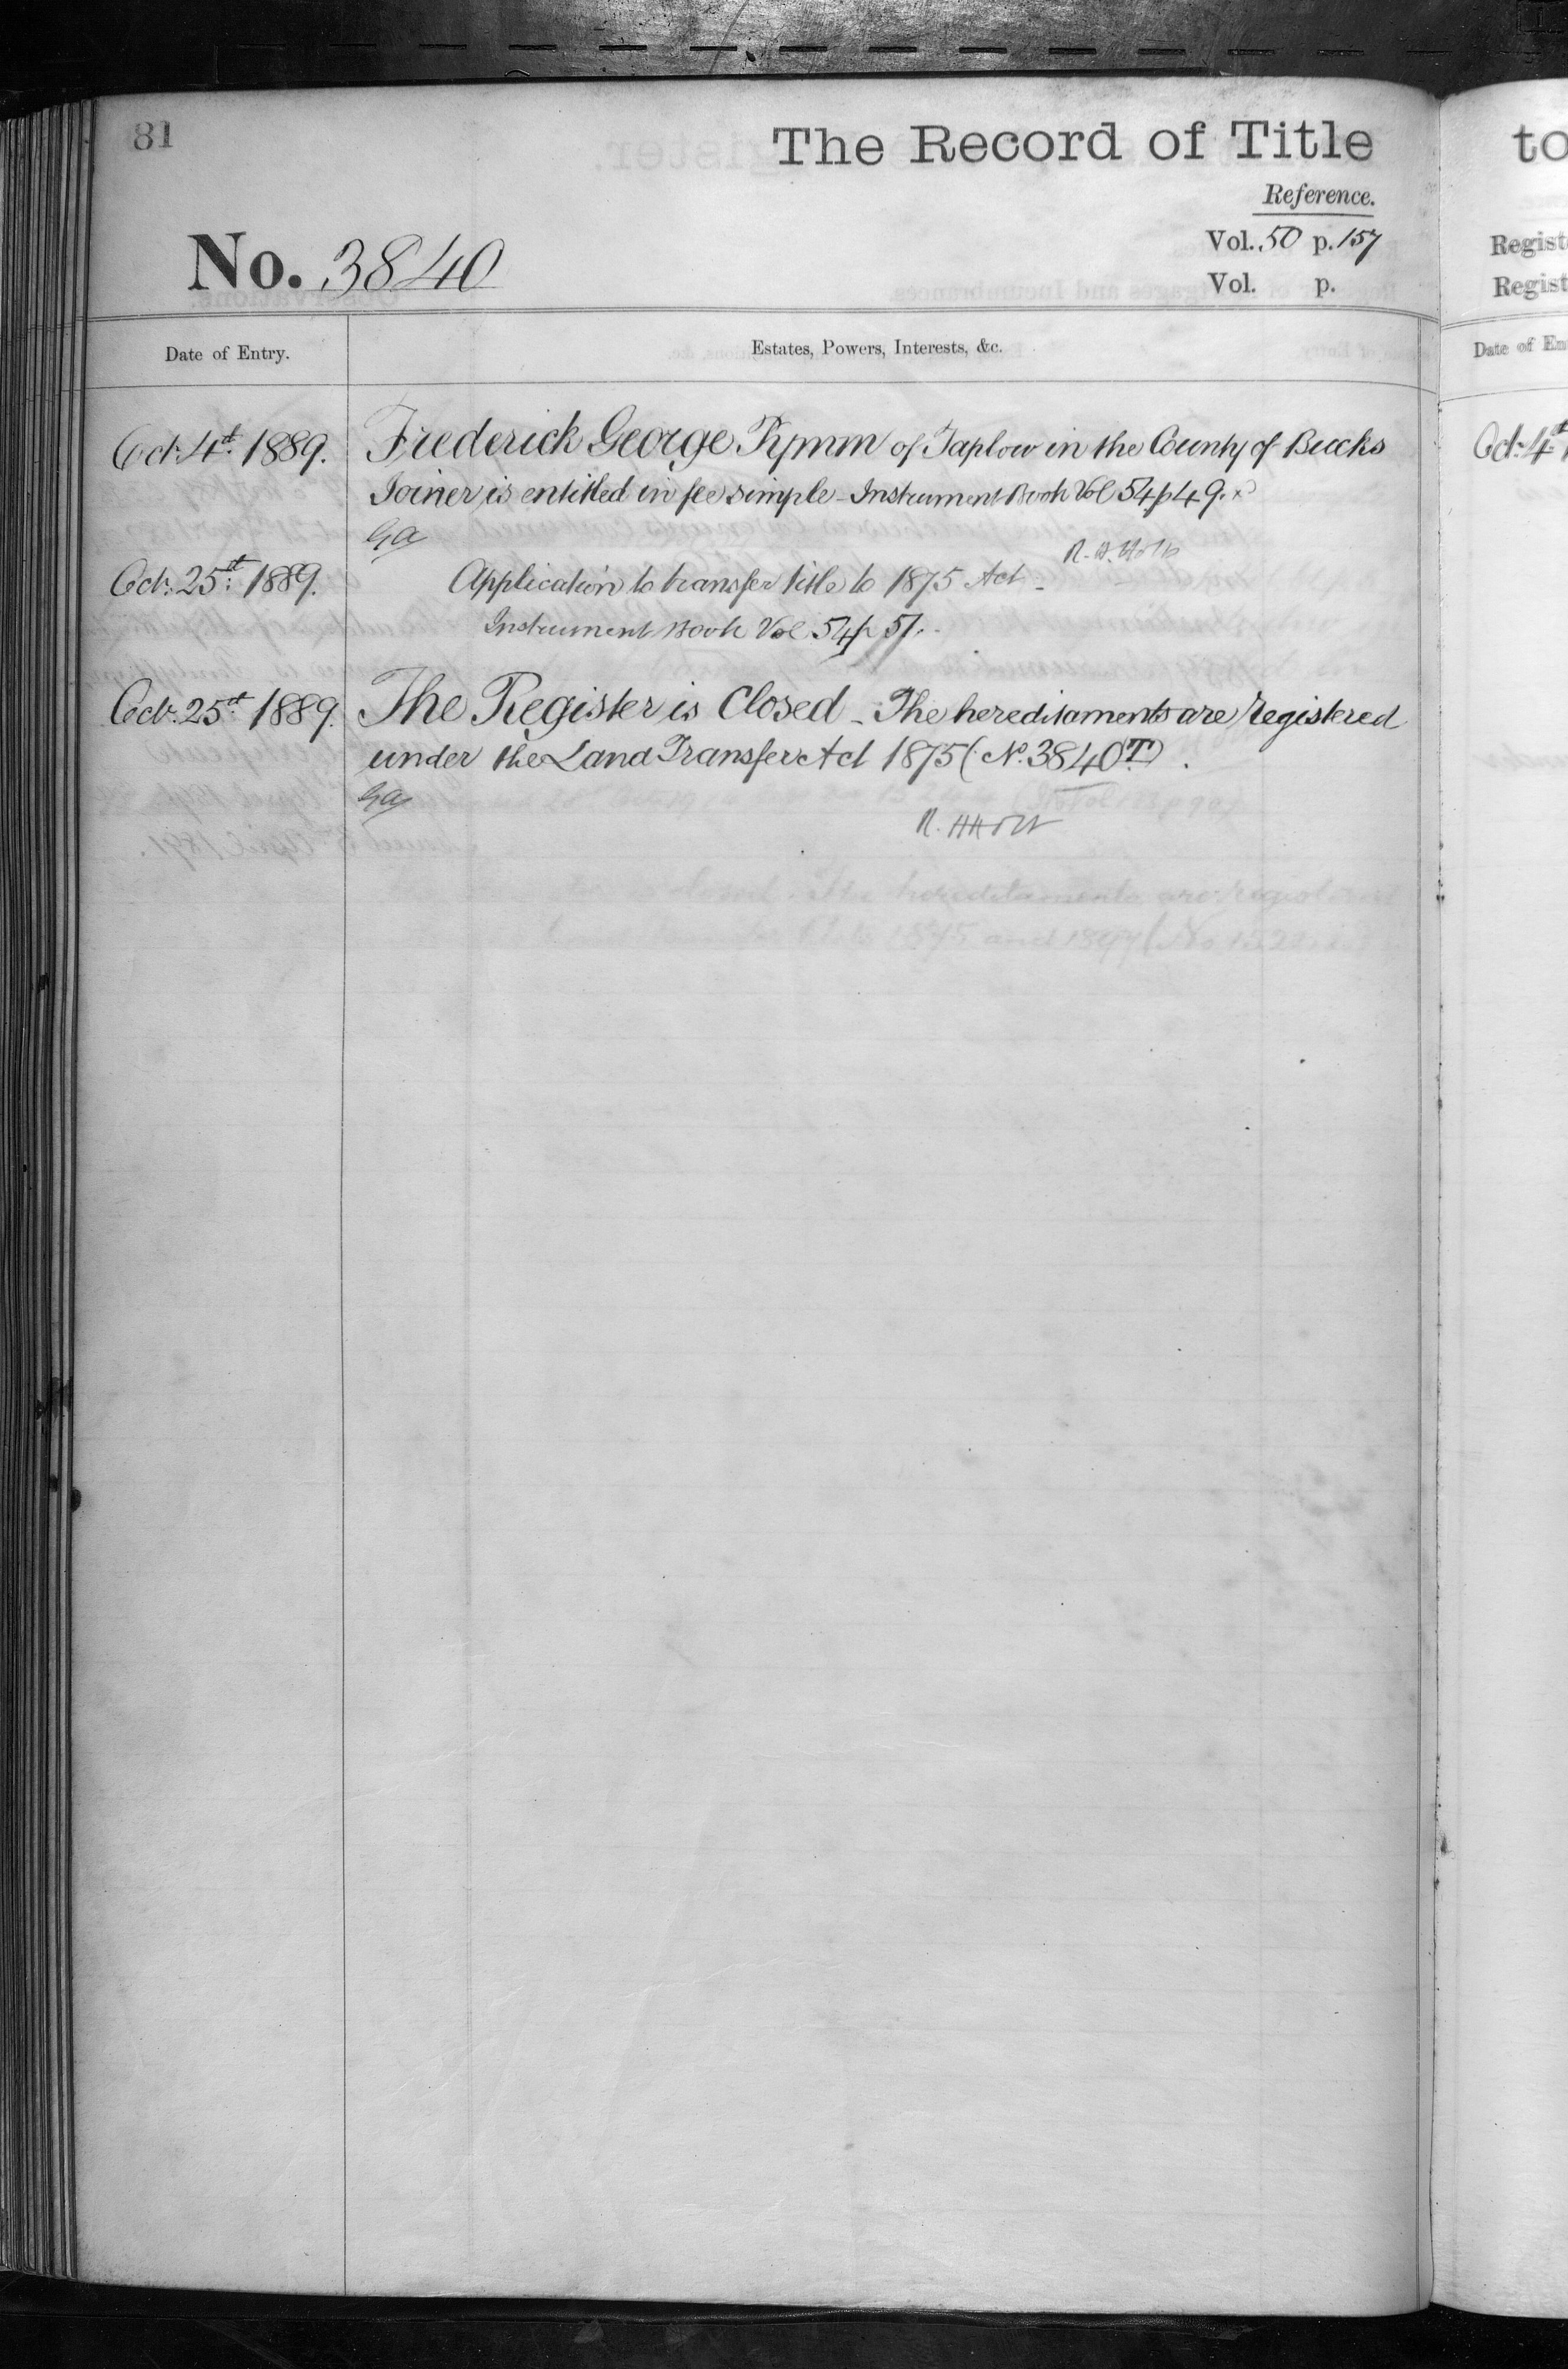 81
The Record of Title
Reference.
No. 3840
Vol. 50 p. 157
Vol. p.
Date of Entry.
Estates, Powers, Interests, &c.
Oct: 4th 1889.
Frederick George Pymm of Taplow in the County of Bucks
Joiner is entitled in fee simple - Instrument Book Vol 54 p 49.
Oct: 25th 1889.
Application to transfer title to 1875 Act -
Instrument Book Vol 54 p 57.
Oct: 25th 1889.
The Register is Closed - The hereditaments are registered
under the Land Transfer Act 1875 (No. 3840T).
R. H Holt
to
Regist
Regist
Date of En
Oct: 4th